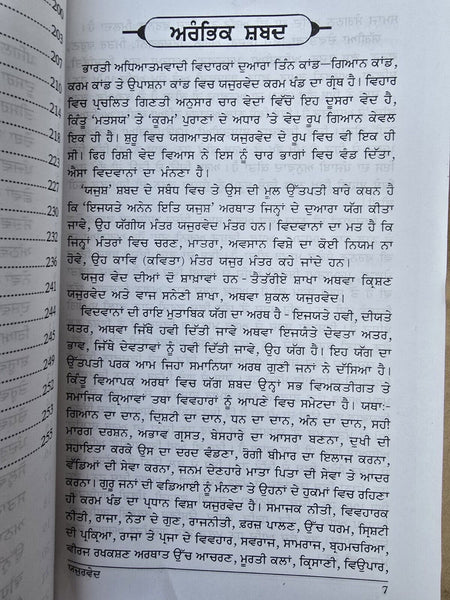 ਅਰੰਭਿਕ ਸ਼ਬਦ
ਭਾਰਤੀ ਅਧਿਆਤਮਵਾਦੀ ਵਿਦਾਰਕਾਂ ਦੁਆਰਾ ਤਿੰਨ ਕਾਂਡ—ਗਿਆਨ ਕਾਂਡ,
ਕਰਮ ਕਾਂਡ ਤੇ ਉਪਾਸ਼ਨਾ ਕਾਂਡ ਵਿਚ ਯਜੁਰਵੇਦ ਕਰਮ ਖੰਡ ਦਾ ਗ੍ਰੰਥ ਹੈ। ਵਿਹਾਰ
ਵਿਚ ਪ੍ਰਚਲਿਤ ਗਿਣਤੀ ਅਨੁਸਾਰ ਚਾਰ ਵੇਦਾਂ ਵਿੱਚੋਂ ਇਹ ਦੂਸਰਾ ਵੇਦ ਹੈ,
ਕਿੰਤੂ ‘ਮਤਸਯ’ ਤੇ ‘ਕੂਰਮ’ ਪੁਰਾਣਾਂ ਦੇ ਅਧਾਰ ’ਤੇ ਵੇਦ ਰੂਪ ਗਿਆਨ ਕੇਵਲ
ਇਕ ਹੀ ਹੈ। ਸ਼ੁਰੂ ਵਿਚ ਯਗਆਤਮਕ ਯਜੁਰਵੇਦ ਦੇ ਰੂਪ ਵਿਚ ਵੀ ਇਕ ਹੀ
ਸੀ। ਫਿਰ ਰਿਸ਼ੀ ਵੇਦ ਵਿਆਸ ਨੇ ਇਸ ਨੂੰ ਚਾਰ ਭਾਗਾਂ ਵਿਚ ਵੰਡ ਦਿੱਤਾ,
ਐਸਾ ਵਿਦਵਾਨਾਂ ਦਾ ਮੰਨਣਾ ਹੈ।
‘ਯਜੁਸ਼’ ਸ਼ਬਦ ਦੇ ਸਬੰਧ ਵਿਚ ਤੇ ਉਸ ਦੀ ਮੂਲ ਉੱਤਪਤੀ ਬਾਰੇ ਕਥਨ ਹੈ
ਕਿ ‘ਇਜਯਤੇ ਅਨੇਨ ਇਤਿ ਯਜੁਸ਼’ ਅਰਥਾਤ ਜਿਨ੍ਹਾਂ ਦੇ ਦੁਆਰਾ ਯੱਗ ਕੀਤਾ
ਜਾਵੇ, ਉਹ ਯੱਗੀਯ ਮੰਤਰ ਯਜੁਰਵੇਦ ਮੰਤਰ ਹਨ। ਵਿਦਵਾਨਾਂ ਦਾ ਮਤ ਹੈ ਕਿ
ਜਿਨ੍ਹਾਂ ਮੰਤਰਾਂ ਵਿਚ ਚਰਣ, ਮਾਤਰਾ, ਅਵਸਾਨ ਵਿਸ਼ੇ ਦਾ ਕੋਈ ਨਿਯਮ ਨਾ
ਹੋਵੇ, ਉਹ ਕਾਵਿ (ਕਵਿਤਾ) ਮੰਤਰ ਯਜੁਰ ਮੰਤਰ ਕਹੇ ਜਾਂਦੇ ਹਨ।
ਯਜੁਰ ਵੇਦ ਦੀਆਂ ਦੋ ਸ਼ਾਖਾਵਾਂ ਹਨ - ਤੈਤੱਰੀਏ ਸ਼ਾਖਾ ਅਥਵਾ ਕ੍ਰਿਸ਼ਣ
ਯਜੁਰਵੇਦ ਅਤੇ ਵਾਜ ਸਨੇਣੀ ਸ਼ਾਖਾ, ਅਥਵਾ ਸ਼ੁਕਲ ਯਜੁਰਵੇਦ।
ਵਿਦਵਾਨਾਂ ਦੀ ਰਾਇ ਮੁਤਾਬਿਕ ਯੱਗ ਦਾ ਅਰਥ ਹੈ - ਇਜਯਤੇ ਹਵੀ, ਦੀਯਤੇ
ਯਤਰ, ਅਥਵਾ ਜਿੱਥੇ ਹਵੀ ਦਿੱਤੀ ਜਾਵੇ ਅਥਵਾ ਇਜਯੰਤੇ ਦੇਵਤਾ ਅਤਰ,
ਭਾਵ, ਜਿੱਥੇ ਦੇਵਤਾਵਾਂ ਨੂੰ ਹਵੀ ਦਿੱਤੀ ਜਾਵੇ, ਉਹ ਯੱਗ ਹੈ। ਇਹ ਯੱਗ ਦਾ
ਉੱਤਪਤੀ ਪਰਕ ਆਮ ਜਿਹਾ ਸਮਾਨਿਯਾ ਅਰਥ ਗੁਣੀ ਜਨਾਂ ਨੇ ਦੱਸਿਆ ਹੈ।
ਕਿੰਤੂ ਵਿਆਪਕ ਅਰਥਾਂ ਵਿਚ ਯੱਗ ਸ਼ਬਦ ਉਨ੍ਹਾਂ ਸਭ ਵਿਅਕਤੀਗਤ ਤੇ
ਸਮਾਜਿਕ ਕ੍ਰਿਆਵਾਂ ਤਥਾ ਵਿਵਹਾਰਾਂ ਨੂੰ ਆਪਣੇ ਵਿਚ ਸਮੇਟਦਾ ਹੈ। ਯਥਾ:-
ਗਿਆਨ ਦਾ ਦਾਨ, ਦ੍ਰਿਸ਼ਟੀ ਦਾ ਦਾਨ, ਧਨ ਦਾ ਦਾਨ, ਅੰਨ ਦਾ ਦਾਨ, ਸਹੀ
ਮਾਰਗ ਦਰਸ਼ਨ, ਅਭਾਵ ਗ੍ਰਸਤ, ਬੇਸਹਾਰੇ ਦਾ ਆਸਰਾ ਬਣਨਾ, ਦੁਖੀ ਦੀ
ਸਹਾਇਤਾ ਕਰਕੇ ਉਸ ਦਾ ਦਰਦ ਵੰਡਣਾ, ਰੋਗੀ ਬੀਮਾਰ ਦਾ ਇਲਾਜ ਕਰਨਾ,
ਵੱਡਿਆਂ ਦੀ ਸੇਵਾ ਕਰਨਾ, ਜਨਮ ਦੇਣਹਾਰੇ ਮਾਤਾ ਪਿਤਾ ਦੀ ਸੇਵਾ ਤੇ ਆਦਰ
ਕਰਨਾ। ਗੁਰੂ ਜਨਾਂ ਦੀ ਵਡਿਆਈ ਨੂੰ ਮੰਨਣਾ ਤੇ ਉਹਨਾਂ ਦੇ ਹੁਕਮਾਂ ਵਿਚ ਰਹਿਣਾ
ਹੀ ਕਰਮ ਖੰਡ ਦਾ ਪ੍ਰਧਾਨ ਵਿਸ਼ਾ ਯਜੁਰਵੇਦ ਹੈ। ਸਮਾਜਕ ਨੀਤੀ, ਵਿਵਹਾਰਕ
ਨੀਤੀ, ਰਾਜਾ, ਨੇਤਾ ਦੇ ਗੁਣ, ਰਾਜਨੀਤੀ, ਫ਼ਰਜ਼ ਪਾਲਣ, ਉੱਚ ਧਰਮ, ਸ੍ਰਿਸ਼ਟੀ
ਦੀ ਪ੍ਰਕ੍ਰਿਆ, ਰਾਜਾ ਤੇ ਪ੍ਰਜਾ ਦੇ ਵਿਵਹਾਰ, ਸਵਰਾਜ, ਸਾਮਰਾਜ, ਬ੍ਰਹਮਚਰਿਆ,
ਵੀਰਜ ਰਖਕਸ਼ਣ ਅਰਥਾਤ ਉੱਚ ਆਚਰਣ, ਮੂਰਤੀ ਕਲਾਂ, ਕ੍ਰਿਸਾਣੀ, ਵਿਉਪਾਰ,
ਯਜੁਰਵੇਦ
7
200
206
210
214
218
223
227
230
232
236
241
244
249
253
255